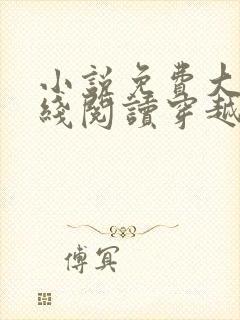 小說免費大
綫閱讀穿越
傅冥